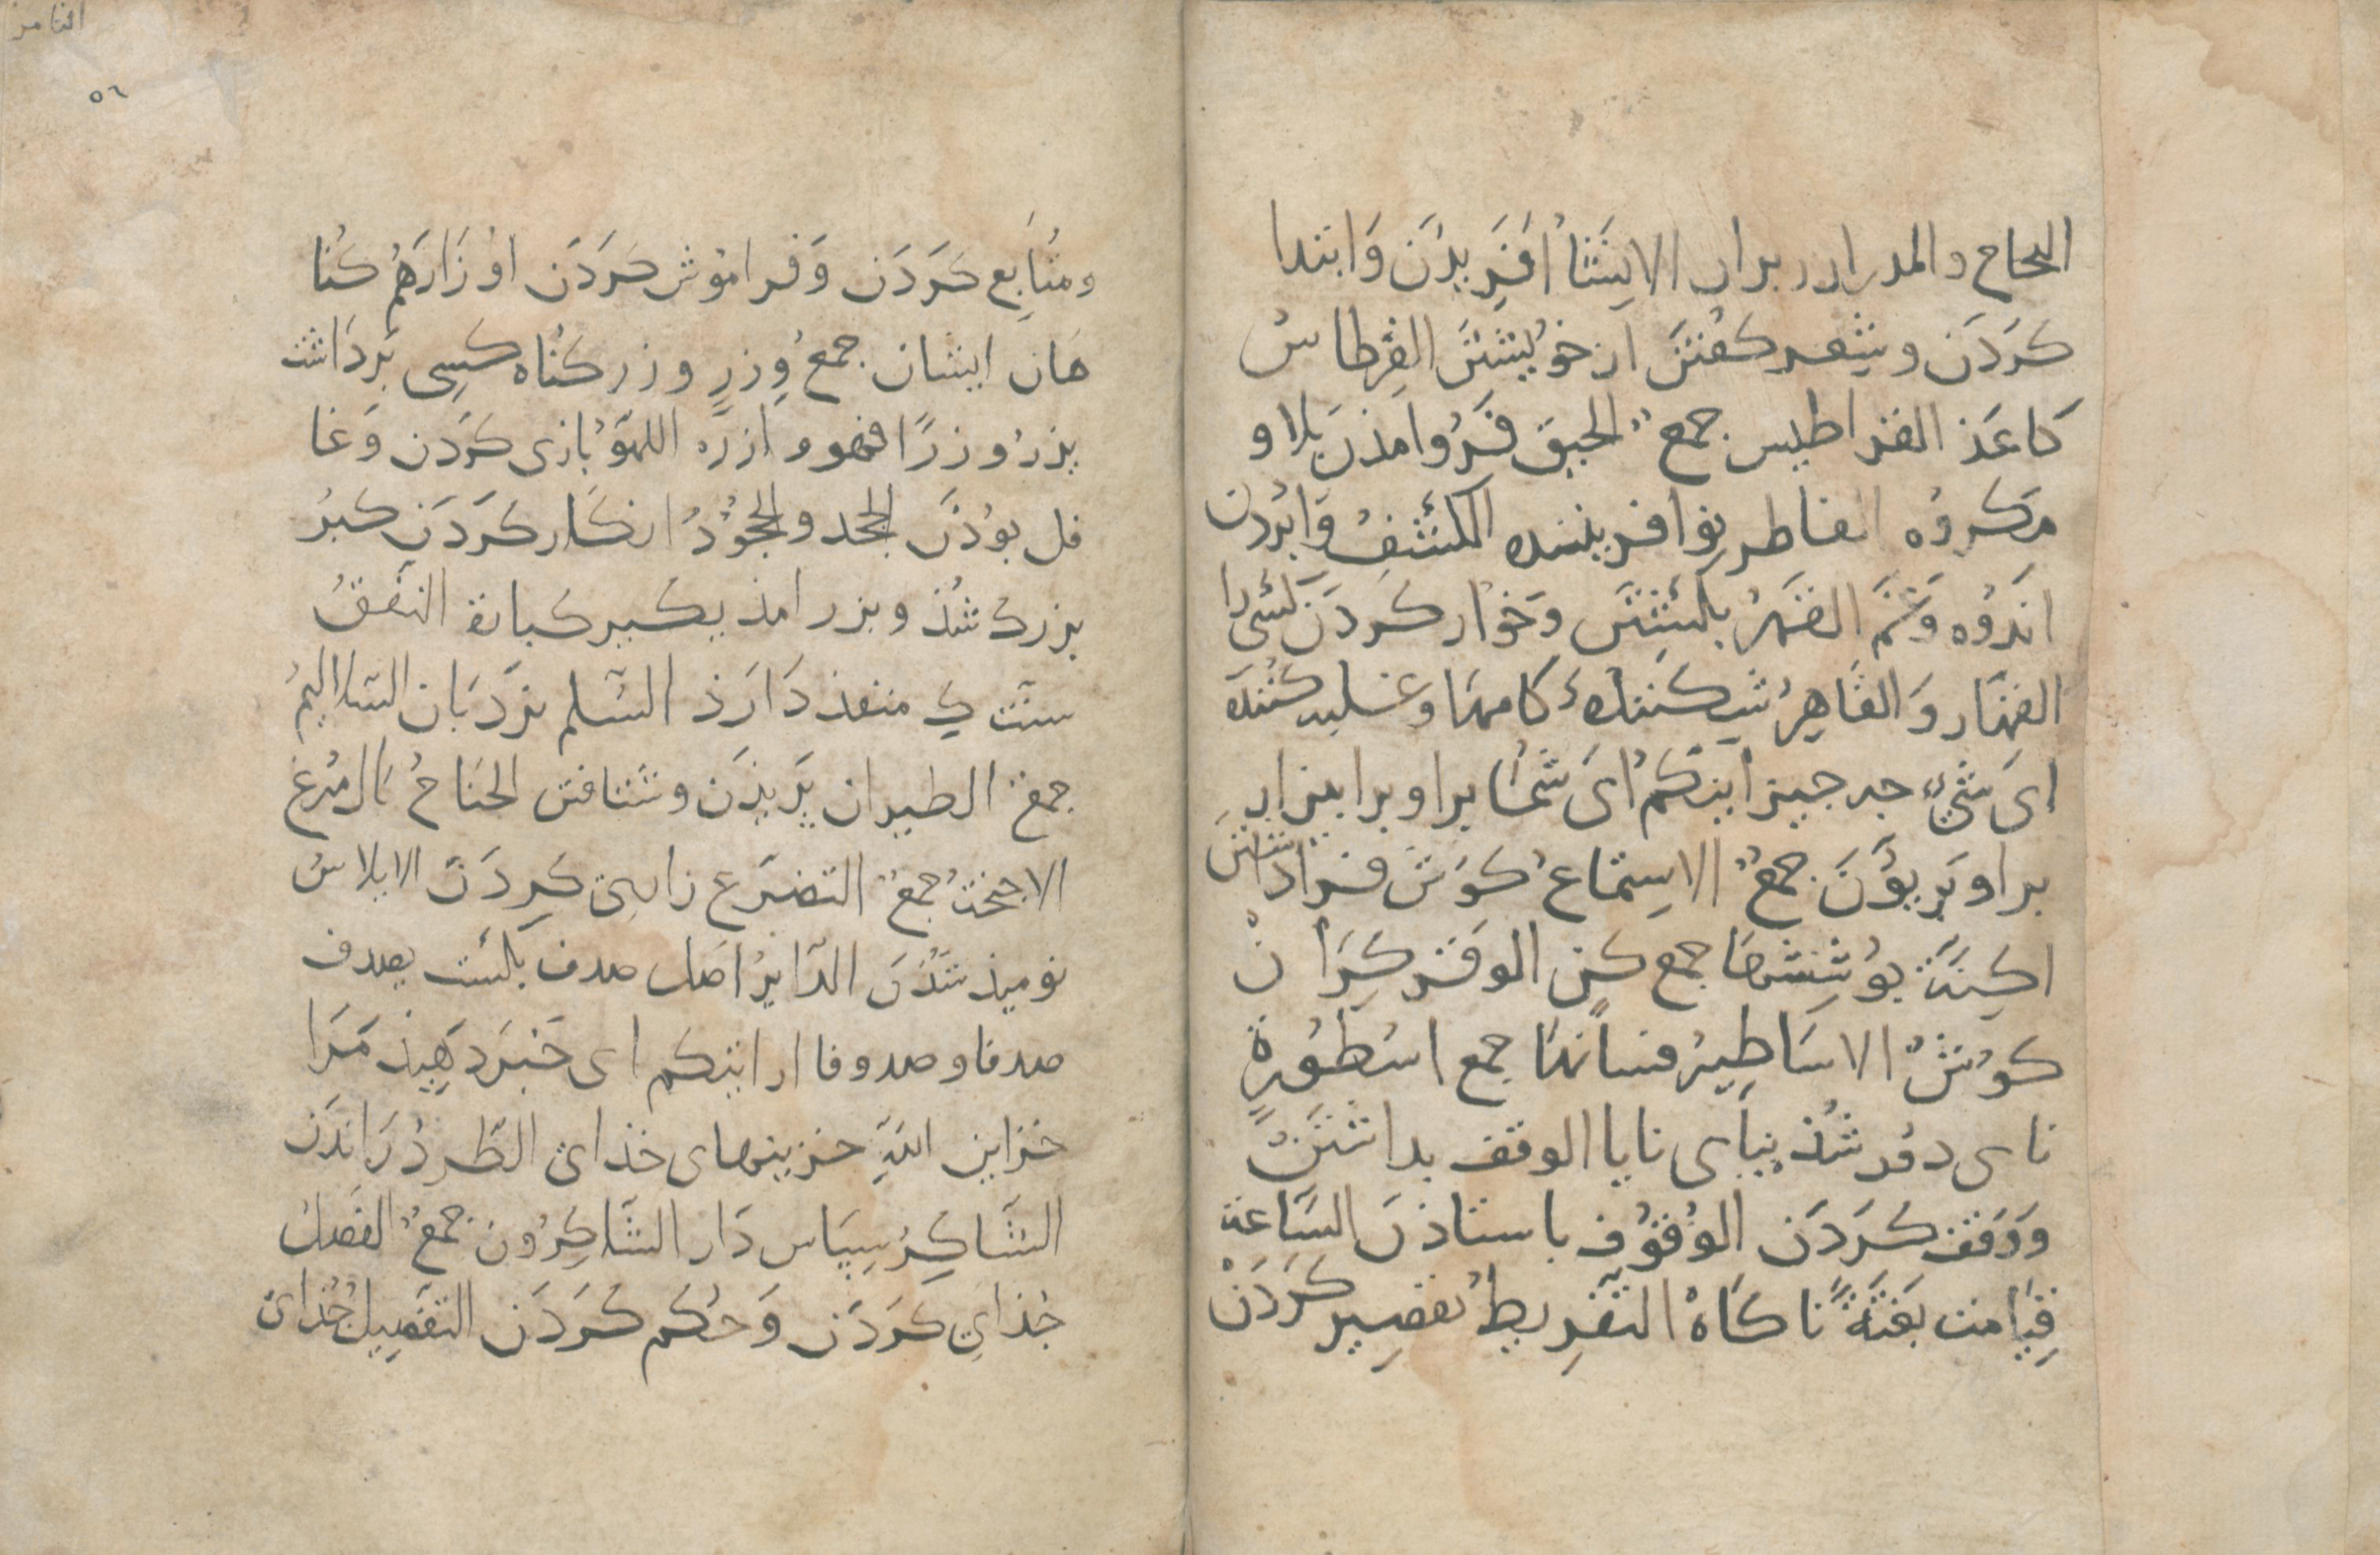 الحاح والمدرار بران الاِنشَأُ اَفَرِيدَن وَابتدا
كَردَن وشِعر كفتن از خويشتن القِرطاسُ
كاغَذ القراطيس جمع الحيق فَرُوامذن بلا و
مَكرُوه الفاطر نوافريننده الكَشفُ وَابُردن
اندُوه وَغم القَهرُ بشكستن وخوار كردن كسى را
القهَّار وَالقَاهِرُ شكننده كامها وغلبه كننده
اىَ شَىءٍ جه جيز اينكم اىَ شما برا وبرا
برا وبربوَن جمعُ الاِستماعُ كوش فراداشتن
اكِنَّة بوشِشها جمع كن الوقر كِرَان
كوش الاسَاطِيرُ فسانها جمع اسُطُورة
ناى دوُر شُذ ينأى نايا الوقف بداشتن
ووَقف كَردَن الوُقوُف باستاذن السَّاعة
قِيَامت بَغتَةً ناكاه التفرِيطُ تقصير كَردَن
الثامن
٥٦
ومتابع كَردَن وَفراموُش كَردَن اوزَارَهُم كُنا
هَان ايشان جمعُ وِزرٍ وزر كناه كسى بَردَاشت
يزرُ وزرًا فهو وازره اللهوُ بازى كَردَن وَغا
فل بوُذَن الجَحد والجحُوُدُ انكار كَردَن كبرُ
بزرك شُذ وبزر امذ يكبر كبارة النفَقُ
ست كِ منفذ دَارَذ السُّلم نردبَان السَّلاليمُ
جمعُ الطيران پَريذَن وشتافتن الجَناحُ بَال مُرغ
الاجنحةُ جمعُ التضرع زاري كَردَن الابلاسُ
نوميذ شذن الدَّابرُ اصَل صدف بكشت يصدف
صدفا وصدوفا ارايتكم اى خَبرَ دهيذ مَرَا
خزاين اللهِ خزينهاى خذاى الطَّردُ رَاندَن
الشَّاكِرُ سِپَاس دَار الشَّاكِرُون جمعُ الفَصلُ
جُذاىِ كَردَن وَحُكم كَردَن التفصِيلُ جُذاى